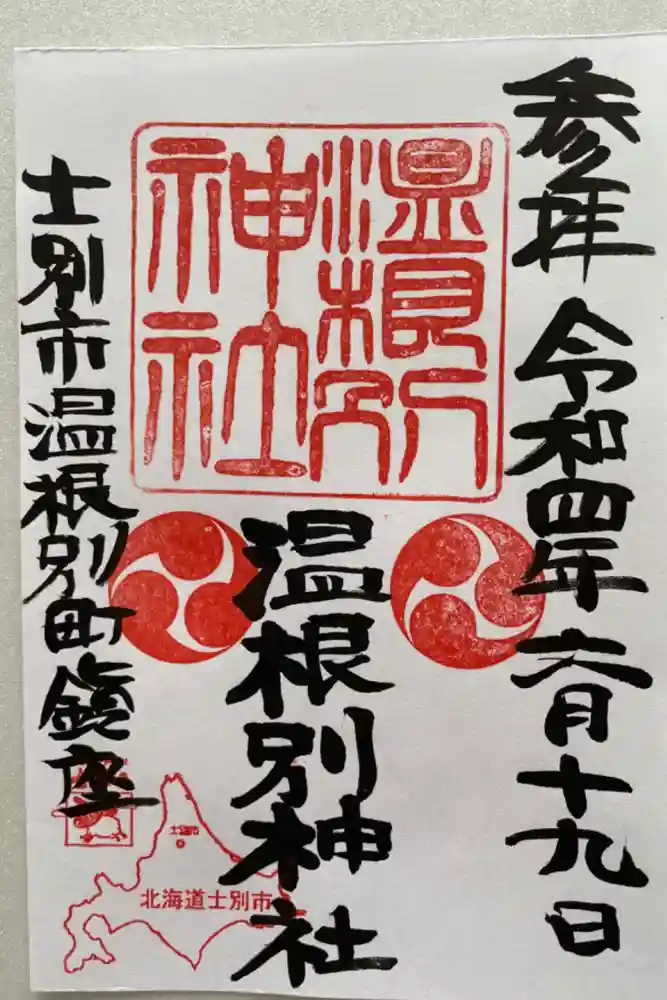 参拝 令和四年 六月十九日
温根別
神社
温根別神社
士別市温根別町鎮座
北海道士別市